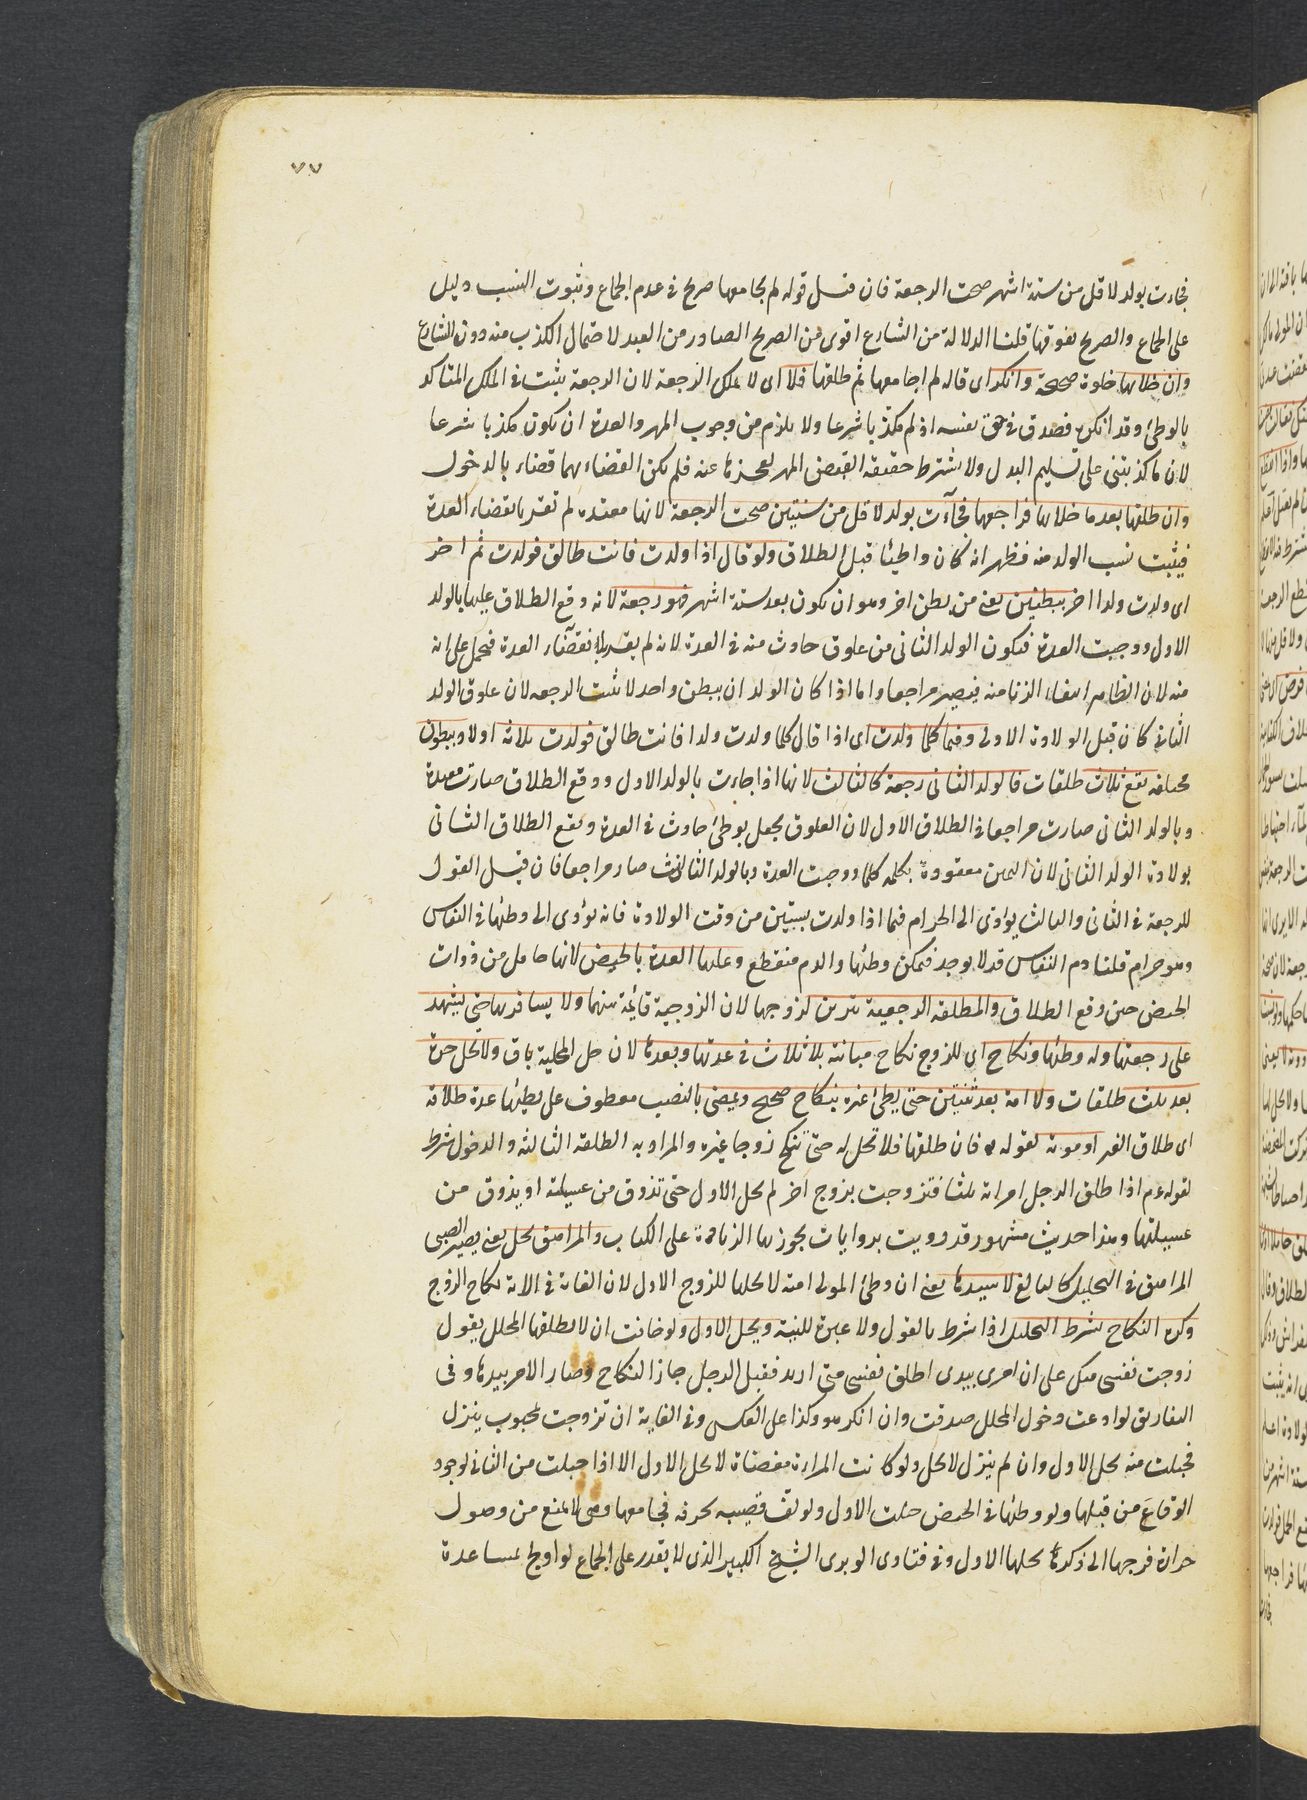 ٧٧
فجاءت بولد لاقل من ستة اشهر صحت الرجعة فان قيل قوله لم يجامعها صريح في عدم الجماع وثبوت النسب دليل
على الجماع والصريح يفوقها قلنا الدلالة من الشارع اقوى من الصريح الصادر من العبد لاحتمال الكذب منه دون الشارع
وان خلا بها خلوة صحيحة وانكر اى قال لم اجامعها ثم طلقها فلا اى لا يملك الرجعة لان الرجعة يثبت في الملك المتاكد
بالوطئ وقد انكره فصدق في حق نفسه اذ لم مكذبا شرعا ولا يلزم من وجوب المهر والعدة ان يكون مكذبا شرعا
لان تاكد يبتنى على تسليم البدل ولا يشترط حقيقة القبض المهر لعجزها عنه فلم يكن القضاء بهما قضاء بالدخول
وان طلقها بعد ما خلا بها فراجعها فجآءت بولد لاقل من سنتين صحت الرجعة لانها معتدة لم تقر بانقضاء العدة
فيثبت نسب الولد منه فظهر انه كان واطيئا قبل الطلاق ولو قال اذا ولدت فانت طالق فولدت ثم اخر
اى ولدت ولدا اخر ببطنين يعنى من بطن اخر وهو ان يكون بعد ستة اشهر فهو رجعة لانه وقع الطلاق عليها بالولد
الاول ووجبت العدة فيكون الولد الثانى من علوق حادث منه في العدة لانه لم يقر بانقضآء العدة فيحمل على انه
منه لان الظاهر انتفاء الزنا منه فيصير مراجعا واما اذا كان الولدان ببطن واحد لا يثبت الرجعه لان علوق الولد
الثاني كان قبل الولادة الاولى وفي كلما ولدت اى اذا قال كلما ولدت ولدا فانت طالق فولدت ثلاثة اولاد ببطون
مختلفه يقع ثلاث طلقات فالولد الثانى رجعة كالثالث لانها اذا جاءت بالولد الاول ووقع الطلاق صارت معتدة
وبالولد الثانى صارت مراجعا في الطلاق الاول لان العلوق يجعل بوطئ حادث في العدة ويقع الطلاق الثانى
بولادة الولد الثانى لان اليمين معقودة بكلمة كلما ووجبت العدة وبالولد الثالث صار مراجعا فان قيل القول
للرجعة في الثانى والثالث يؤدى الى الحرام فيما اذا ولدت بسنتين من وقت الولادة فانه يؤدى الى وطئها في النفاس
وهو حرام قلنا دم النفاس قد لا يوجد فيمكن وطئها والدم منقطع وعليها العدة بالحيض لانها حامل من ذوات
الحيض حين وقع الطلاق والمطلقه الرجعية تتزين لزوجها لان الزوجية قائمة بينهما ولا يسافر بها حتى يشهد
على رجعتها وله وطئها ونكاح اى للزوج نكاح مبانته بلا ثلاث في عدتها وبعدها لان حل المحلية باق ولا يحل حرة
بعد ثلث طلقات ولا امة بعد ثنتين حتى يطئ غيره بنكاح صحيح ويمضى بالنصب معطوف على يطيئها عدة طلاقه
اى طلاق الغير او موته لقوله تع فان طلقها فلا تحل له حتى تنكح زوجا غيره والمراد به الطلقة الثالثه والدخول شرط
لقوله عم اذا طلق الرجل امراته ثلثا فتزوجت بزوج اخر لم يحل الاول حتى تذوق من عسيلته او يذوق من
عسيلتها وهذا حديث مشهور قد رويت بروايات يجوز بها الزيادة على الكتاب والمراهق يحلل يعنى يصير الصبى
المراهق في التحليل كالبالغ لا سيدها يعنى ان وطئ المولى امته لا يحلها للزوج الاول لان الغاية في الاية نكاح الزوج
وكره النكاح بشرط التحليل اذا شرط بالقول ولا عبرة للنية ويحل الاول ولو خافت ان لا يطلقها المحلل يقول
زوجت نفسى منك على ان امرى بيدى اطلق نفسى متى اريد فقبل الرجل جاز النكاح وصار الامر بيدها وفى
التفاريق لو ادعت دخول المحلل صدقت وان انكر هو وكذا على العكس وفي الغاية ان تزوجت لمجبوب ينزل
فحبلت منه يحل الاول وان لم ينزل لا يحل ولو كانت المراءة مفضاة لا يحل الاول الا اذا حبلت من الثانى لوجود
الوقاع من قبلها ولو وطئها في الحيض حلت الاول ولو لف قضيبه بخرقة فجامعها وهى لا يمنع من وصول
حرارة فرجها الى ذكره يحلها الاول وفي فتاوى الوبرى الشيخ الكبير الذى لا يقدر على الجماع لو اولج بمساعدة